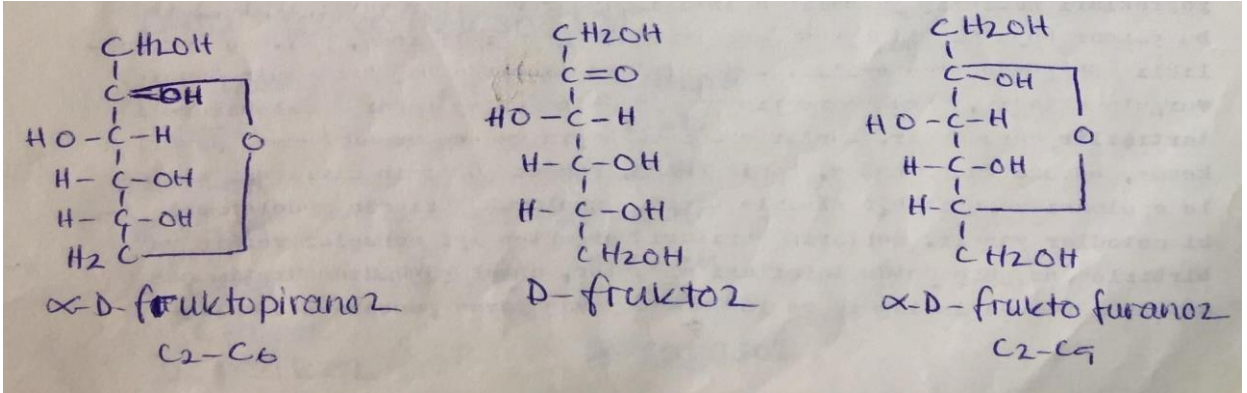 CH2OH
C-OH
O
HO-C-H
H-C-OH
H-C-OH
H2 C
α-D-fruktopiranoz
C2-C6
CH2OH
C=O
HO-C-H
H-C-OH
H-C-OH
CH2OH
D-fruktoz
CH2OH
C-OH
HO-C-H
O
H-C-OH
H-C
CH2OH
α-D-frukto furanoz
C2-C9